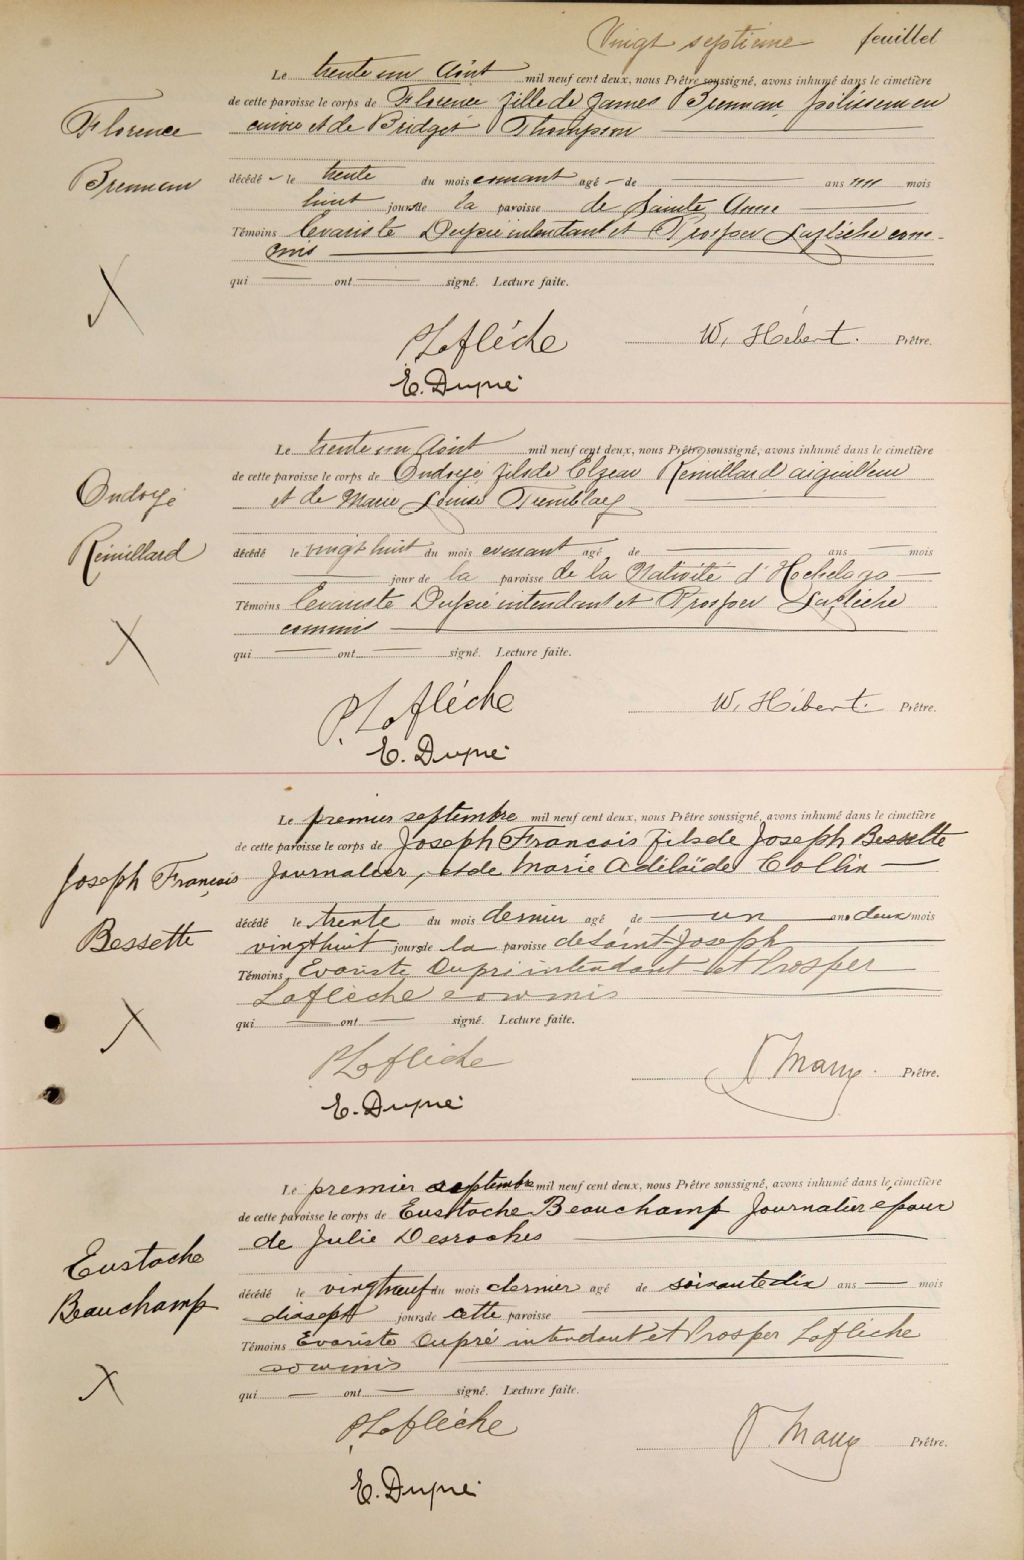 Vingt septième feuillet
Le trente un Août mil neuf cent deux, nous Prêtre soussigné, avons inhumé dans le cimetière
de cette paroisse le corps de Florence fille de James Brennan, polisseur en
Florence
cuivre et de Bridget Thompson
Brennan
décédé le trente du mois courant agé de ans mois
huit jours de la paroisse de Sainte Anne
Témoins Evariste Dupré intendant et Prosper Laflèche com-
mis
qui ont signé. Lecture faite.
X
PLaflèche W. Hébert. Prêtre.
E. Dupré
Le trente un Août mil neuf cent deux, nous Prêtre soussigné, avons inhumé dans le cimetière
de cette paroisse le corps de Ondoyé, fils de Elzear Remillard aiguilleur
Ondoyé
et de Marie Louise Tremblay
Rémillard
décédé le vingt huit du mois courant agé de ans mois
jour de la paroisse de la Nativité d'Hochelaga
Témoins Evariste Dupré intendant et Prosper Laflèche
commis
X
qui ont signé. Lecture faite.
P. Laflèche W. Hébert. Prêtre.
E. Dupré
Le premier septembre mil neuf cent deux, nous Prêtre soussigné, avons inhumé dans le cimetière
de cette paroisse le corps de Joseph François fils de Joseph Bessette
Joseph François
Journalier, et de Marie Adélaïde Collin
Bessette
décédé le trente du mois dernier agé de un an deux mois
vingt huit jours de la paroisse de Saint-Joseph
Témoins Evariste Dupré intendant et Prosper
Laflèche commis
X
qui ont signé. Lecture faite.
PLaflèche Prêtre.
E. Dupré
Le premier septembre mil neuf cent deux, nous Prêtre soussigné, avons inhumé dans le cimetière
de cette paroisse le corps de Eustache Beauchamp Journalier époux
de Julie Desroches
Eustache
Beauchamp
décédé le vingt neuf du mois dernier agé de soixante dix ans mois
dixsept jours de cette paroisse
Témoins Evariste Dupré intendant et Prosper Laflèche
commis
X
qui ont signé. Lecture faite.
PLaflèche Prêtre.
E. Dupré